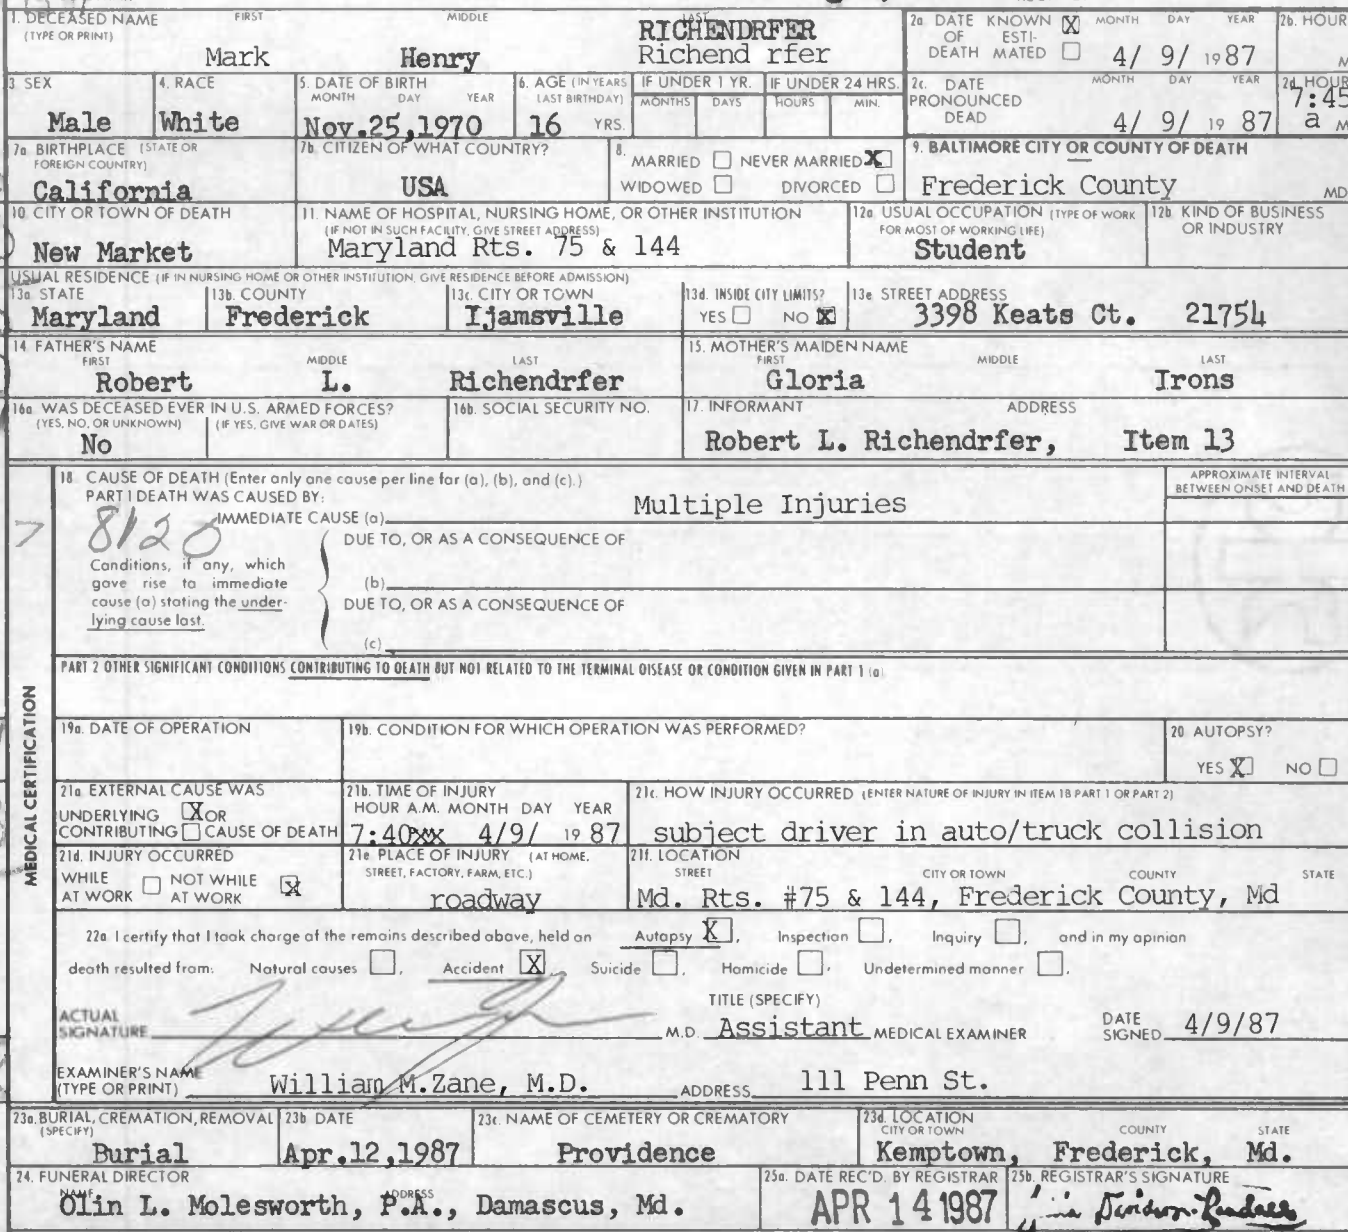 1. DECEASED NAME FIRST MIDDLE LAST
(TYPE OR PRINT)
RICHENDRFER
Mark Henry Richend rfer
2a. DATE KNOWN X MONTH DAY YEAR
OF ESTI-
DEATH MATED 4/ 9/ 1987
2b. HOUR
M
3 SEX
Male
4. RACE
White
5. DATE OF BIRTH
MONTH DAY YEAR
Nov.25,1970
6. AGE (IN YEARS
LAST BIRTHDAY)
16 YRS.
IF UNDER 1 YR.
MONTHS DAYS
IF UNDER 24 HRS.
HOURS MIN.
2c. DATE MONTH DAY YEAR
PRONOUNCED
DEAD 4/ 9/ 19 87
2d. HOUR
7:45
a M
7a BIRTHPLACE (STATE OR
FOREIGN COUNTRY)
California
7b. CITIZEN OF WHAT COUNTRY?
USA
8.
MARRIED NEVER MARRIED X
WIDOWED DIVORCED
9. BALTIMORE CITY OR COUNTY OF DEATH
Frederick County MD
10 CITY OR TOWN OF DEATH
New Market
11. NAME OF HOSPITAL, NURSING HOME, OR OTHER INSTITUTION
(IF NOT IN SUCH FACILITY, GIVE STREET ADDRESS)
Maryland Rts. 75 & 144
12a USUAL OCCUPATION (TYPE OF WORK
FOR MOST OF WORKING LIFE)
Student
12b. KIND OF BUSINESS
OR INDUSTRY
USUAL RESIDENCE (IF IN NURSING HOME OR OTHER INSTITUTION, GIVE RESIDENCE BEFORE ADMISSION)
13a. STATE
Maryland
13b. COUNTY
Frederick
13c. CITY OR TOWN
Ijamsville
13d. INSIDE CITY LIMITS?
YES NO X
13e STREET ADDRESS
3398 Keats Ct. 21754
14 FATHER'S NAME
FIRST MIDDLE LAST
Robert L. Richendrfer
15. MOTHER'S MAIDEN NAME
FIRST MIDDLE LAST
Gloria Irons
16a WAS DECEASED EVER IN U.S. ARMED FORCES?
(YES, NO, OR UNKNOWN) (IF YES, GIVE WAR OR DATES)
No
16b. SOCIAL SECURITY NO.
17. INFORMANT ADDRESS
Robert L. Richendrfer, Item 13
MEDICAL CERTIFICATION
18 CAUSE OF DEATH (Enter only one cause per line for (a), (b), and (c).)
PART I DEATH WAS CAUSED BY:
APPROXIMATE INTERVAL
BETWEEN ONSET AND DEATH
8120
IMMEDIATE CAUSE (a) Multiple Injuries
DUE TO, OR AS A CONSEQUENCE OF
Conditions, if any, which
gave rise to immediate
cause (a) stating the under-
lying cause last.
(b)
DUE TO, OR AS A CONSEQUENCE OF
(c)
PART 2 OTHER SIGNIFICANT CONDITIONS CONTRIBUTING TO DEATH BUT NOT RELATED TO THE TERMINAL DISEASE OR CONDITION GIVEN IN PART 1 (a)
19a. DATE OF OPERATION
19b. CONDITION FOR WHICH OPERATION WAS PERFORMED?
20 AUTOPSY?
YES X NO
21a EXTERNAL CAUSE WAS
UNDERLYING X OR
CONTRIBUTING CAUSE OF DEATH
21b. TIME OF INJURY
HOUR A.M. MONTH DAY YEAR
7:40xx 4/9/ 1987
21c. HOW INJURY OCCURRED (ENTER NATURE OF INJURY IN ITEM 18 PART 1 OR PART 2)
subject driver in auto/truck collision
21d. INJURY OCCURRED
WHILE NOT WHILE X
AT WORK AT WORK
21e PLACE OF INJURY (AT HOME,
STREET, FACTORY, FARM, ETC.)
roadway
21f. LOCATION
STREET CITY OR TOWN COUNTY STATE
Md. Rts. #75 & 144, Frederick County, Md
22a I certify that I took charge of the remains described above, held an Autopsy X, Inspection , Inquiry , and in my opinion
death resulted from: Natural causes , Accident X, Suicide , Homicide , Undetermined manner .
TITLE (SPECIFY)
ACTUAL
SIGNATURE M.D. Assistant MEDICAL EXAMINER
DATE
SIGNED 4/9/87
EXAMINER'S NAME
(TYPE OR PRINT) William M.Zane, M.D. ADDRESS 111 Penn St.
23a. BURIAL, CREMATION, REMOVAL
(SPECIFY)
Burial
23b DATE
Apr.12,1987
23c. NAME OF CEMETERY OR CREMATORY
Providence
23d. LOCATION
CITY OR TOWN COUNTY STATE
Kemptown, Frederick, Md.
24. FUNERAL DIRECTOR
NAME ADDRESS
Olin L. Molesworth, P.A., Damascus, Md.
25a. DATE REC'D. BY REGISTRAR
APR 14 1987
25b. REGISTRAR'S SIGNATURE
Davidson-Randall